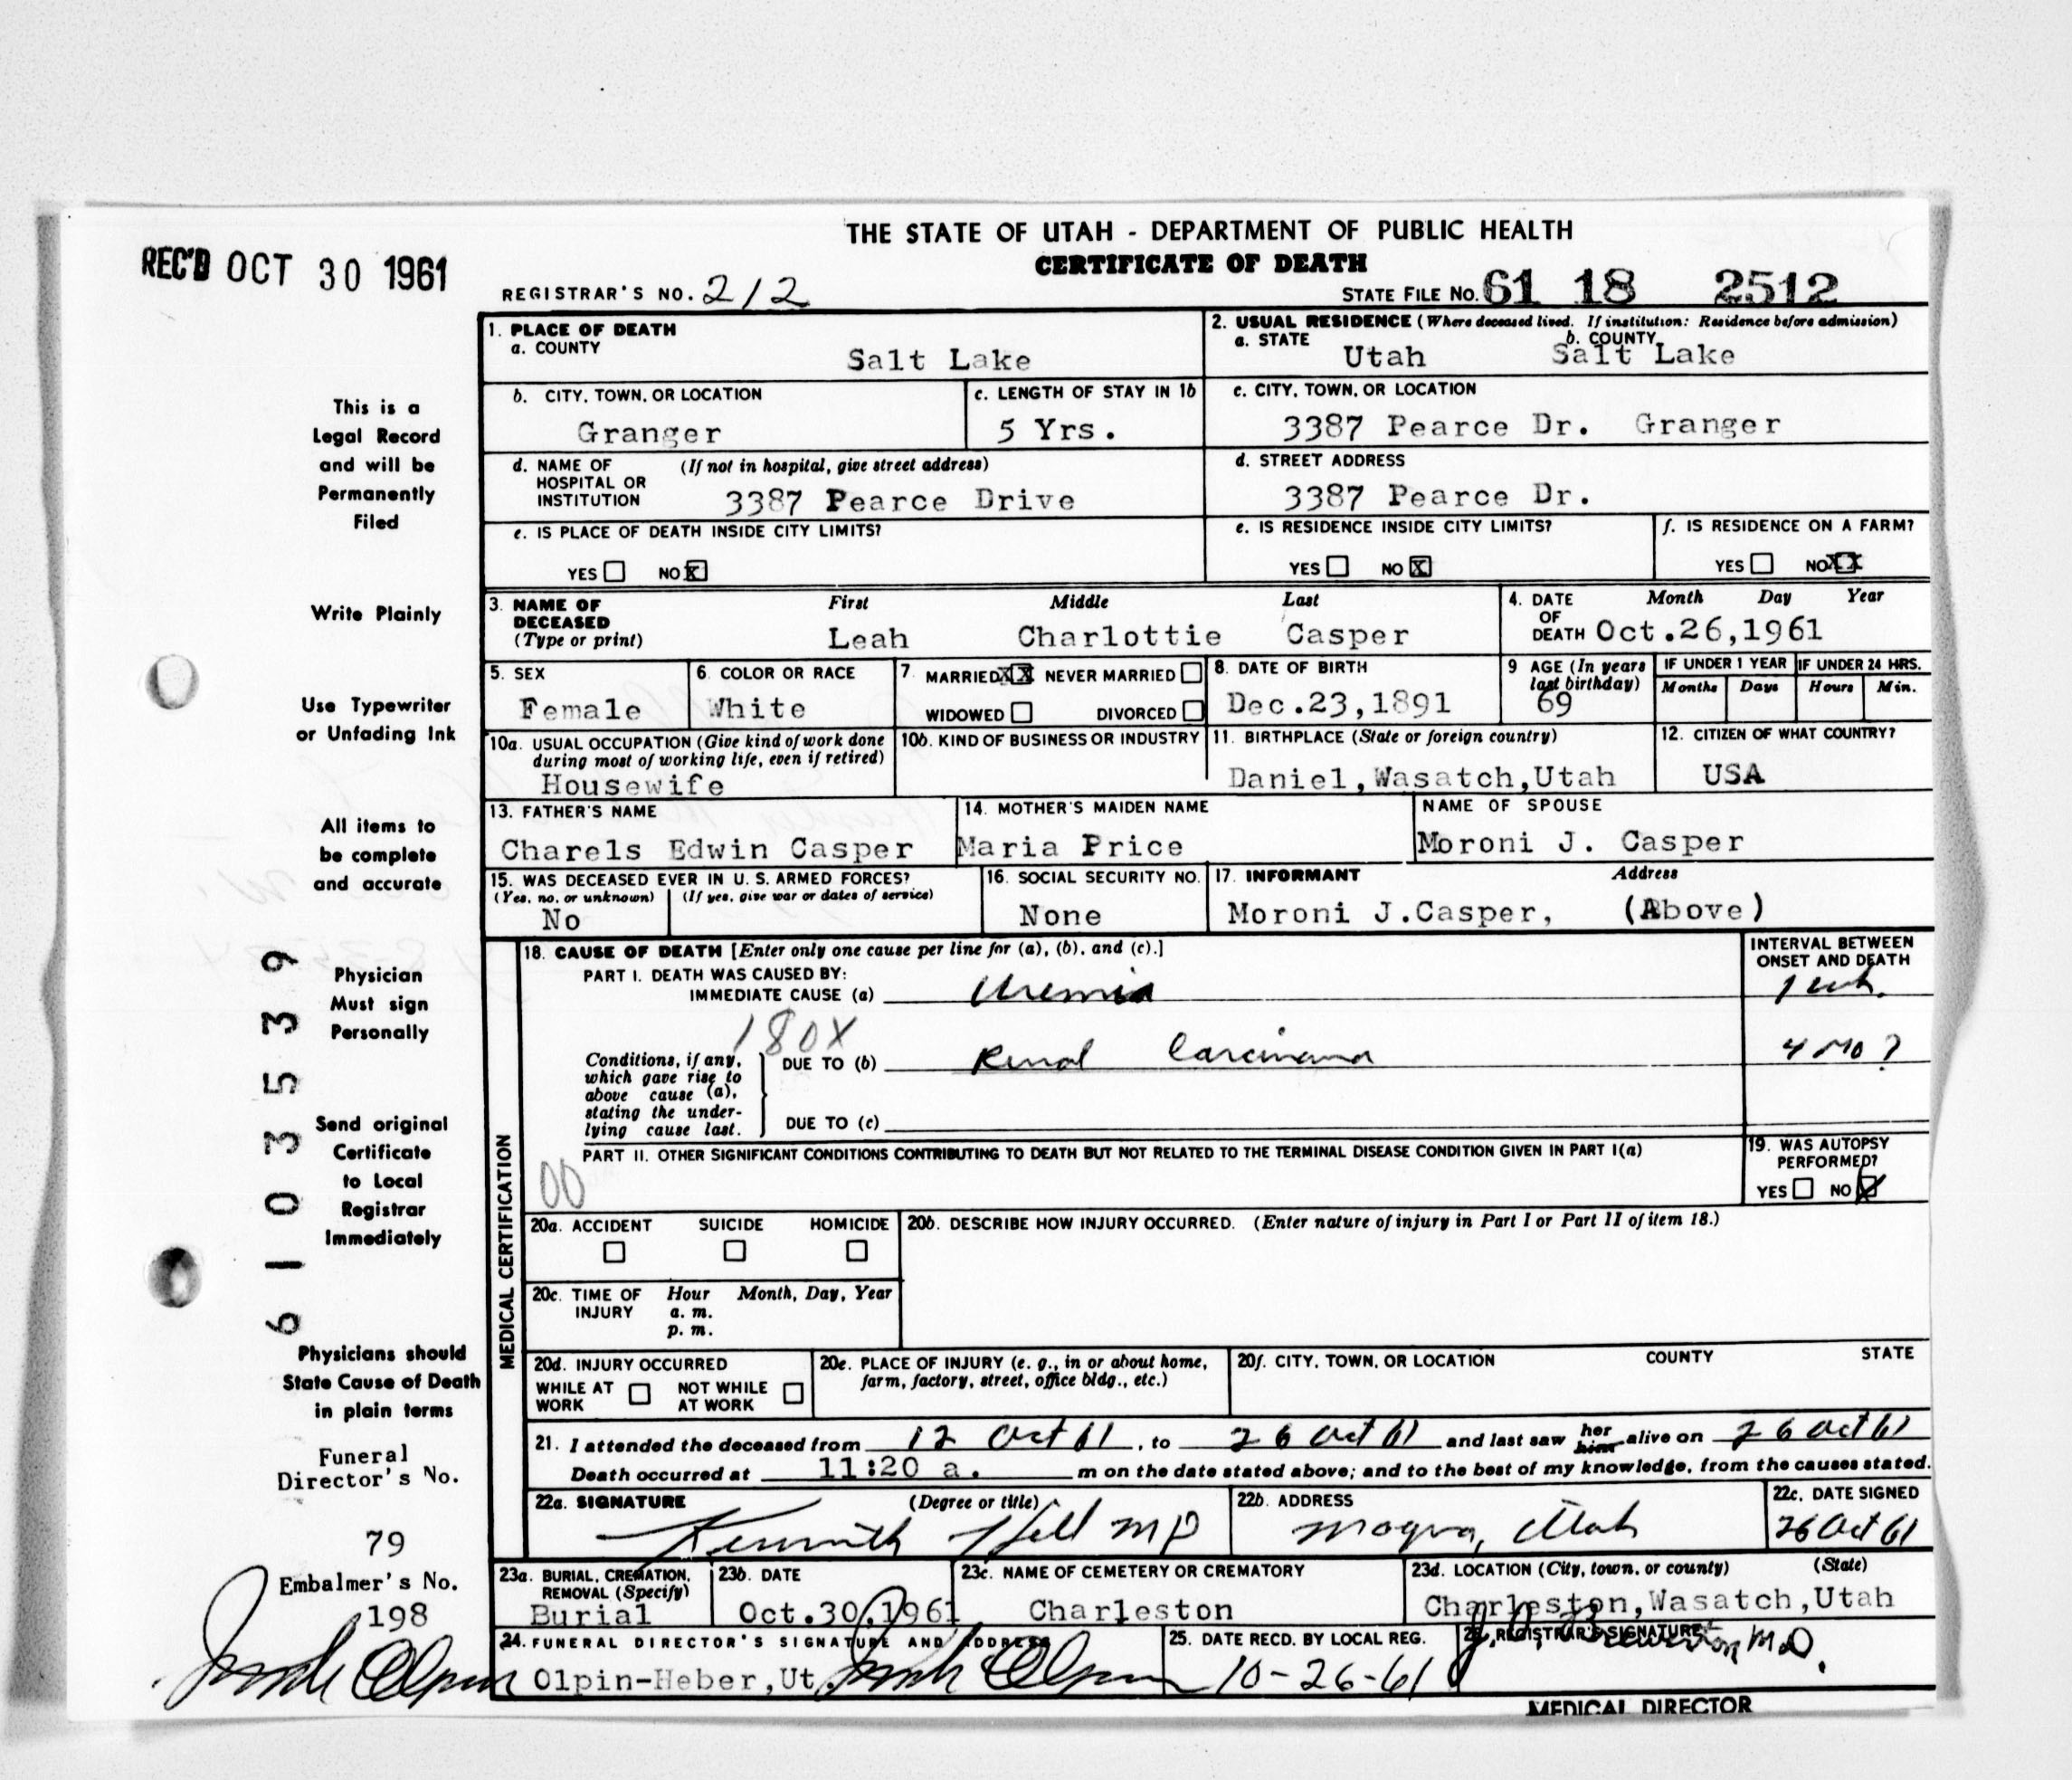 THE STATE OF UTAH - DEPARTMENT OF PUBLIC HEALTH
CERTIFICATE OF DEATH
REC'D OCT 30 1961
REGISTRAR'S NO. 212
STATE FILE NO. 61 18 2512
1. PLACE OF DEATH
a. COUNTY
Salt Lake
2. USUAL RESIDENCE (Where deceased lived. If institution: Residence before admission)
a. STATE Utah b. COUNTY Salt Lake
b. CITY, TOWN, OR LOCATION
Granger
c. LENGTH OF STAY IN 1b
5 Yrs.
c. CITY, TOWN, OR LOCATION
3387 Pearce Dr. Granger
d. NAME OF HOSPITAL OR INSTITUTION (If not in hospital, give street address)
3387 Pearce Drive
d. STREET ADDRESS
3387 Pearce Dr.
e. IS PLACE OF DEATH INSIDE CITY LIMITS?
YES NO X
e. IS RESIDENCE INSIDE CITY LIMITS?
YES NO X
f. IS RESIDENCE ON A FARM?
YES NO XX
3. NAME OF DECEASED (Type or print)
First Middle Last
Leah Charlottie Casper
4. DATE OF DEATH
Month Day Year
Oct.26,1961
5. SEX
Female
6. COLOR OR RACE
White
7. MARRIED XX NEVER MARRIED
WIDOWED DIVORCED
8. DATE OF BIRTH
Dec.23,1891
9 AGE (In years last birthday)
69
IF UNDER 1 YEAR
Months Days
IF UNDER 24 HRS.
Hours Min.
10a. USUAL OCCUPATION (Give kind of work done during most of working life, even if retired)
Housewife
10b. KIND OF BUSINESS OR INDUSTRY
11. BIRTHPLACE (State or foreign country)
Daniel,Wasatch,Utah
12. CITIZEN OF WHAT COUNTRY?
USA
13. FATHER'S NAME
Charels Edwin Casper
14. MOTHER'S MAIDEN NAME
Maria Price
NAME OF SPOUSE
Moroni J. Casper
15. WAS DECEASED EVER IN U. S. ARMED FORCES?
(Yes, no, or unknown) (If yes, give war or dates of service)
No
16. SOCIAL SECURITY NO.
None
17. INFORMANT Address
Moroni J.Casper, (Above)
MEDICAL CERTIFICATION
18. CAUSE OF DEATH [Enter only one cause per line for (a), (b), and (c).]
INTERVAL BETWEEN ONSET AND DEATH
PART I. DEATH WAS CAUSED BY:
IMMEDIATE CAUSE (a) Uremia 1 wk.
180X
Conditions, if any, which gave rise to above cause (a), stating the underlying cause last.
DUE TO (b) Renal Carcinoma 4 Mo ?
DUE TO (c)
PART II. OTHER SIGNIFICANT CONDITIONS CONTRIBUTING TO DEATH BUT NOT RELATED TO THE TERMINAL DISEASE CONDITION GIVEN IN PART I(a)
00
19. WAS AUTOPSY PERFORMED?
YES NO
20a. ACCIDENT SUICIDE HOMICIDE
20b. DESCRIBE HOW INJURY OCCURRED. (Enter nature of injury in Part I or Part II of item 18.)
20c. TIME OF INJURY Hour Month, Day, Year
a. m.
p. m.
20d. INJURY OCCURRED
WHILE AT WORK NOT WHILE AT WORK
20e. PLACE OF INJURY (e. g., in or about home, farm, factory, street, office bldg., etc.)
20f. CITY, TOWN, OR LOCATION COUNTY STATE
21. I attended the deceased from 12 Oct 61, to 26 Oct 61 and last saw her him alive on 26 Oct 61
Death occurred at 11:20 a. m on the date stated above; and to the best of my knowledge, from the causes stated.
22a. SIGNATURE (Degree or title)
Kenneth Hill MD
22b. ADDRESS
Magna, Utah
22c. DATE SIGNED
26 Oct 61
23a. BURIAL, CREMATION, REMOVAL (Specify)
Burial
23b. DATE
Oct.30,1961
23c. NAME OF CEMETERY OR CREMATORY
Charleston
23d. LOCATION (City, town, or county) (State)
Charleston,Wasatch,Utah
24. FUNERAL DIRECTOR'S SIGNATURE AND ADDRESS
Olpin-Heber,Ut. Olpin
25. DATE RECD. BY LOCAL REG.
10-26-61
REGISTRAR'S SIGNATURE
M.D.
MEDICAL DIRECTOR
This is a
Legal Record
and will be
Permanently
Filed
Write Plainly
Use Typewriter
or Unfading Ink
All items to
be complete
and accurate
Physician
Must sign
Personally
Send original
Certificate
to Local
Registrar
Immediately
Physicians should
State Cause of Death
in plain terms
6103539
Funeral
Director's No.
79
Embalmer's No.
198
Olpin